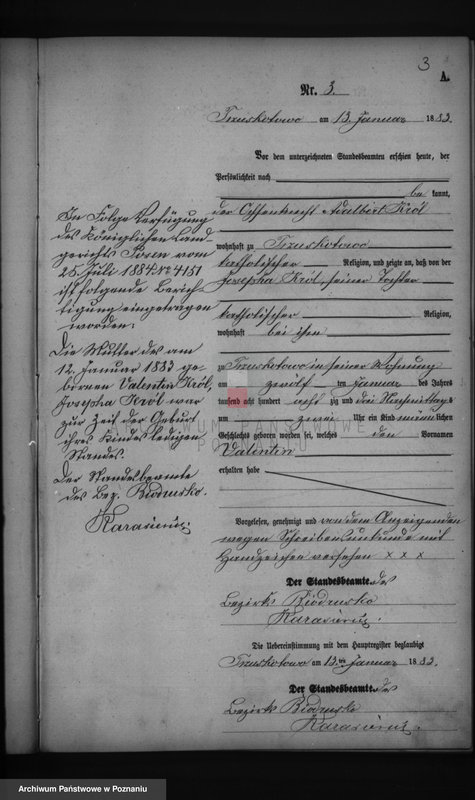 3
A.
Nr. 3.
Truskotowo am 13. Januar 1883.
Vor dem unterzeichneten Standesbeamten erschien heute, der
Persönlichkeit nach
bekannt,
der Ochsenknecht Adalbert Król
wohnhaft zu Truskotowo
katholischer Religion, und zeigte an, daß von der
Josepha Król, seiner Tochter
katholischer Religion,
wohnhaft bei ihm
zu Truskotowo in seiner Wohnung
am zwölf ten Januar des Jahres
tausend acht hundert acht zig und drei Nachmittags
um zwei Uhr ein Kind männlichen
Geschlechts geboren worden sei, welches den Vornamen
Valentin
erhalten habe
Vorgelesen, genehmigt und von dem Anzeigenden
wegen Schreibensunkunde mit
Handzeichen versehen x x x
Der Standesbeamte des
Bezirks Biedrusko
Karasiewicz.
Die Uebereinstimmung mit dem Hauptregister beglaubigt
Truskotowo am 13ten Januar 1883.
Der Standesbeamte des
Bezirks Biedrusko
Karasiewicz.
In Folge Verfügung
des Königlichen Land
gerichts Posen vom
25 Juli 1884 No 4151
ist folgende Berich-
tigung eingetragen
worden:
Die Mutter des am
12. Januar 1883 ge-
borenen Valentin Król,
Josepha Król war
zur Zeit der Geburt
ihres Kindes ledigen
Standes.
Der Standesbeamte
des Bez. Biedrusko.
Karasiewicz
ARCHIWUM PAŃSTWOWE
W POZNANIU
Archiwum Państwowe w Poznaniu